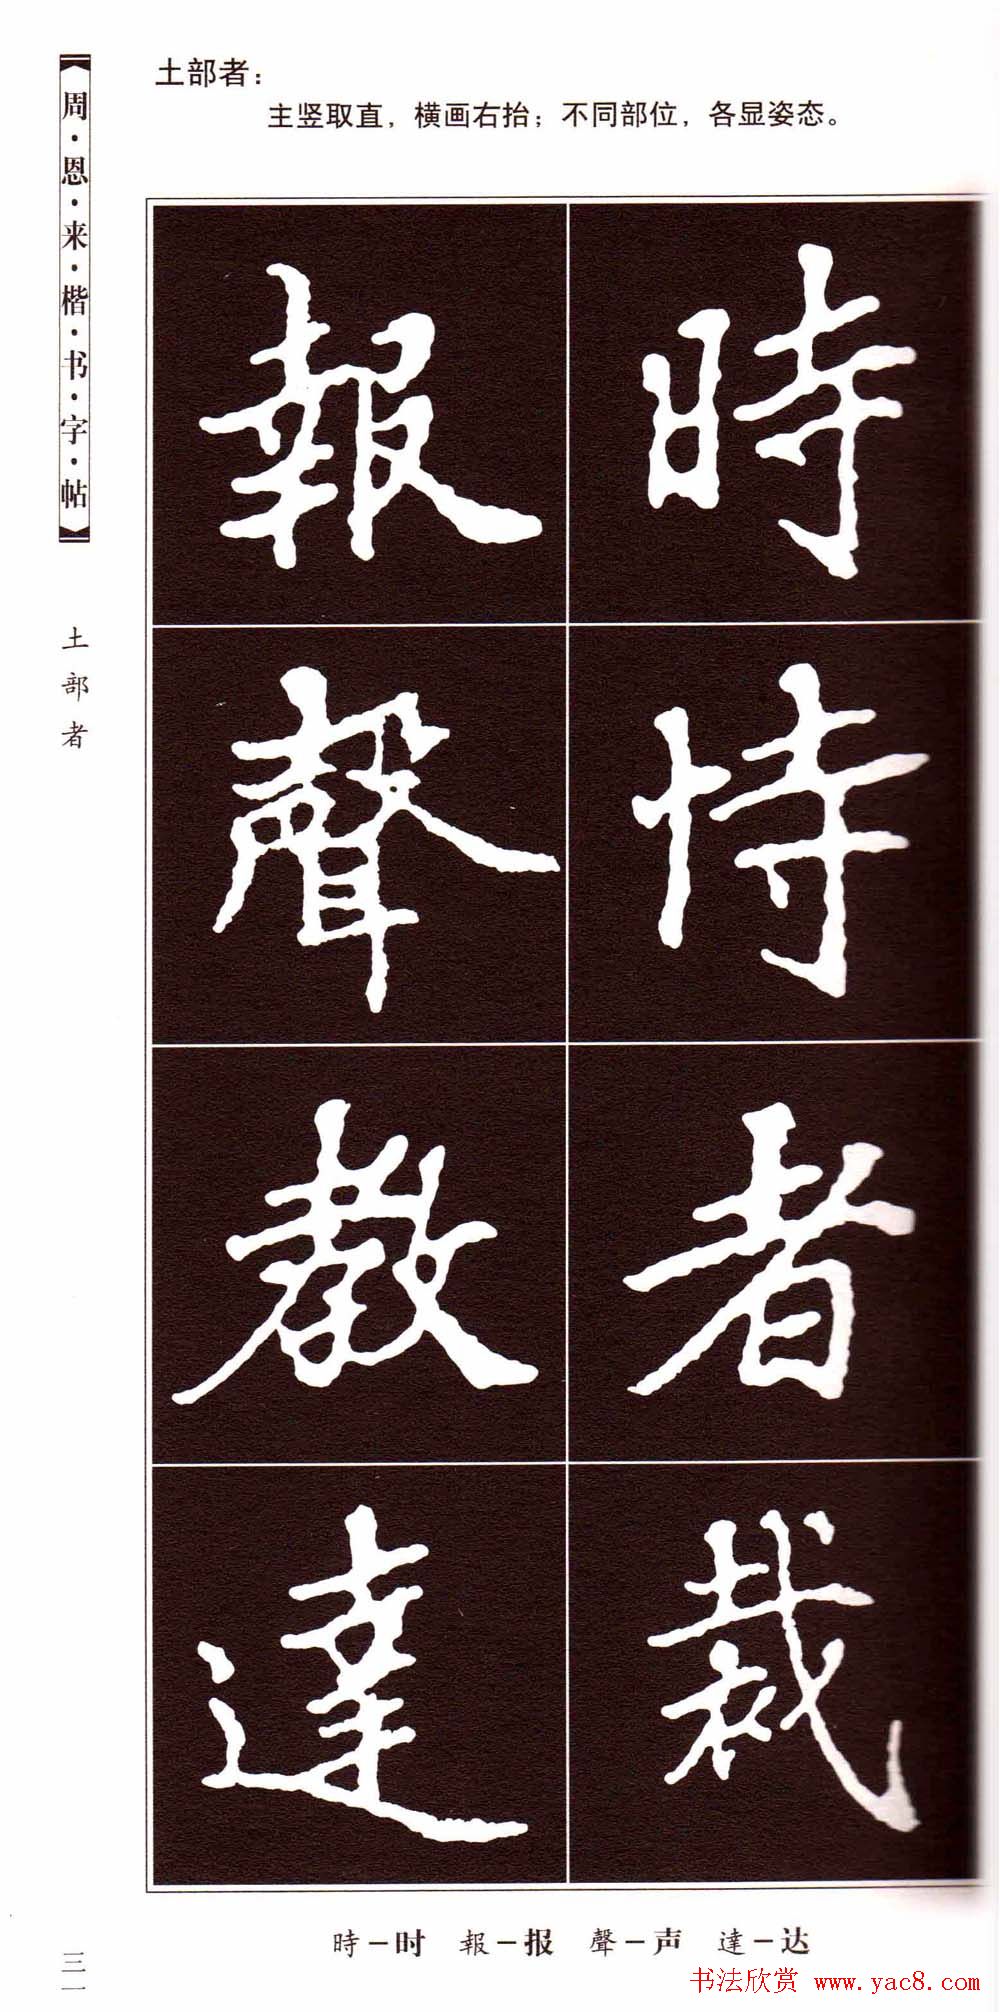 土部者：
主竖取直，横画右抬；不同部位，各显姿态。
周·恩·来·楷·书·字·帖
土部者
時恃者裁
報聲教達
時－时 報－报 聲－声 達－达
三一
书法欣赏 www.yac8.com